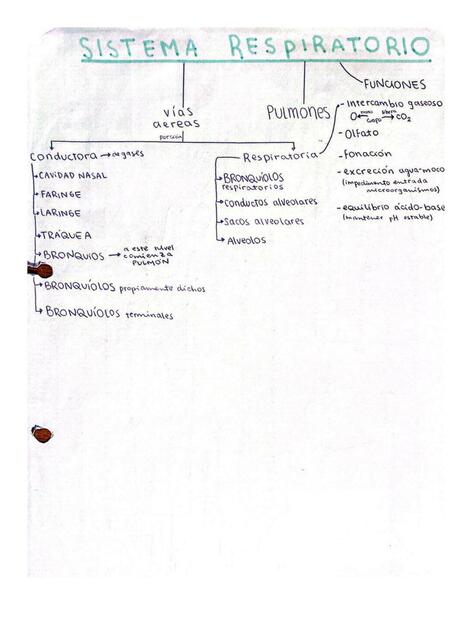 SISTEMA RESPIRATORIO
FUNCIONES
vías
aereas
porción
Pulmones
- Intercambio gaseoso
CO₂
- Olfato
- Fonación
- excreción agua-moco
(impedimento entrada
microorganismos)
- equilibrio ácido-base
(mantener pH estable)
Conductora → de gases
CAVIDAD NASAL
FARINGE
LARINGE
TRÁQUEA
BRONQUIOS → a este nivel
comienza
PULMÓN
BRONQUÍOLOS propiamente dichos
BRONQUÍOLOS terminales
Respiratoria
BRONQUÍOLOS
respiratorios
conductos alveolares
Sacos alveolares
Alveolos